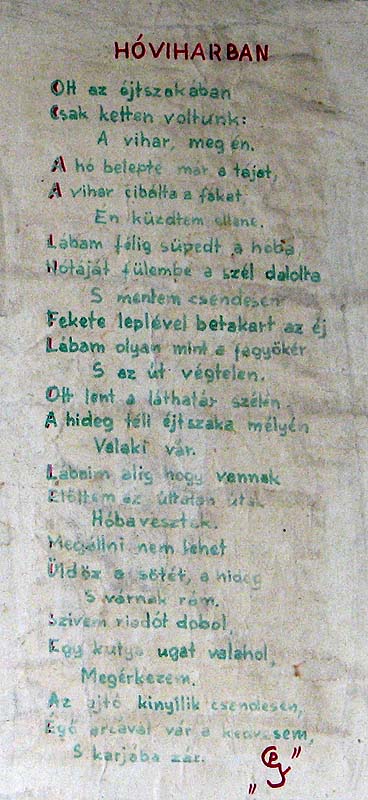 HÓVIHARBAN
Ott az éjtszakában
Csak ketten voltunk:
A vihar, meg én.
A hó belepte már a tájat,
A vihar cibálta a fákat
Én küzdtem ellene.
Lábam félig süpedt a hóba,
Nótáját fülembe a szél dalolta
S mentem csendesen
Fekete leplével betakart az éj
Lábam olyan mint a fagyökér
S az út végtelen.
Ott lent a láthatár szélén
A hideg téli éjtszaka mélyén
Valaki vár.
Lábaim alig hogy vannak
Előttem az úttalan utak
Hóbavesztek.
Megállni nem lehet
Üldöz a sötét, a hideg
S várnak rám.
Szivem riadót dobol,
Egy kutya ugat valahol,
Megérkezem.
Az ajtó kinyílik csendesen,
Égő arcával vár a kedvesem,
S karjába zár.